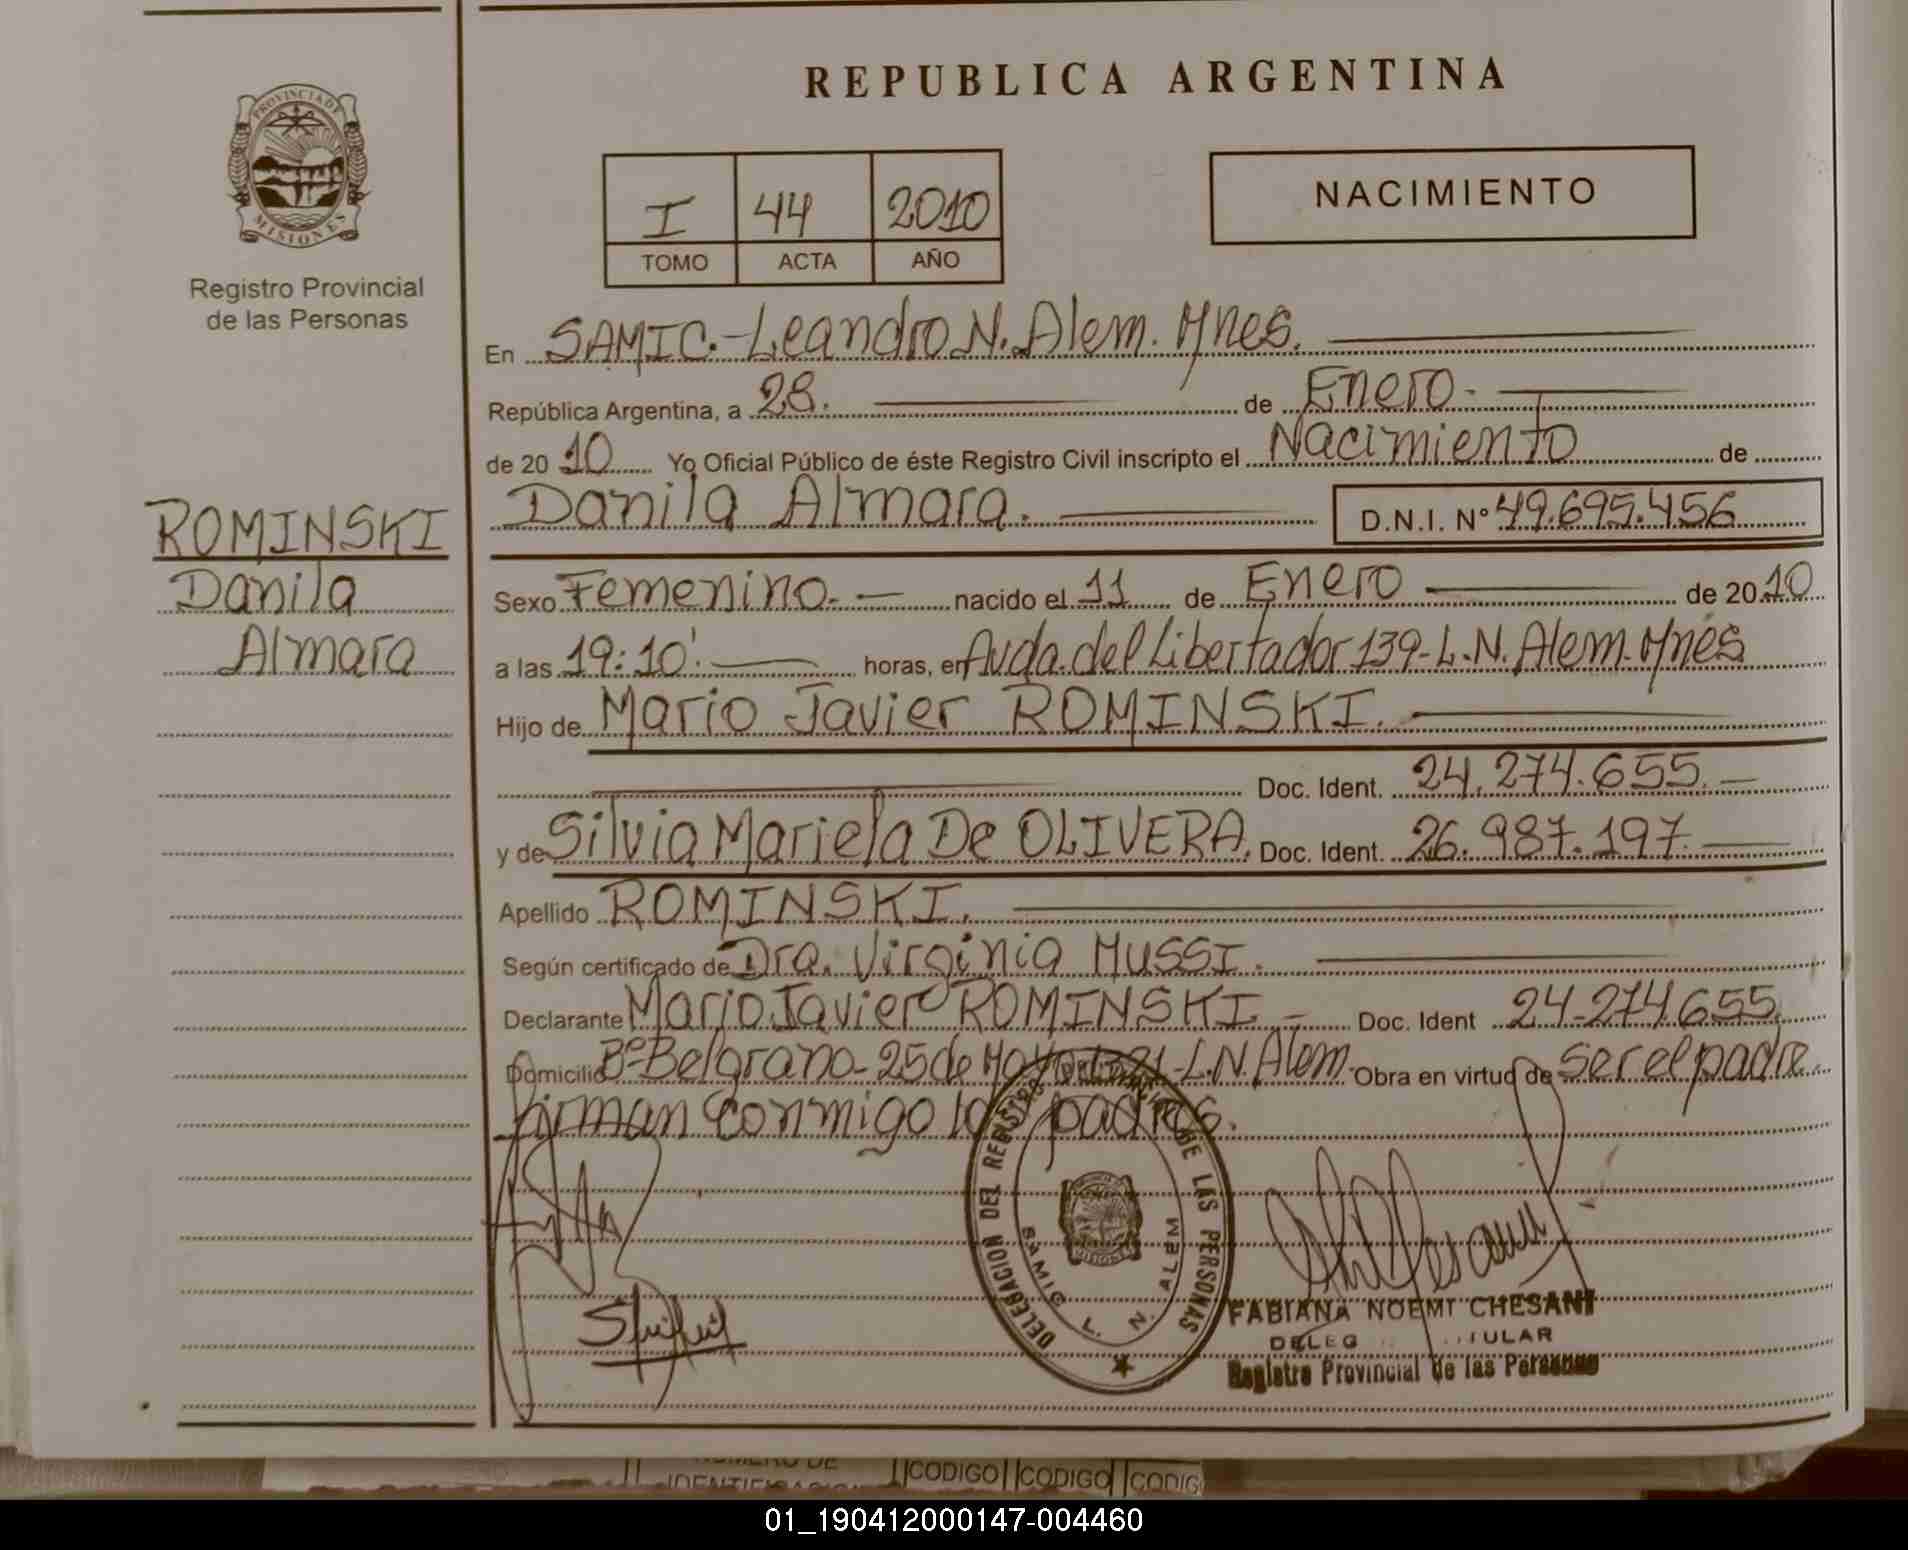 REPUBLICA ARGENTINA
PROVINCIA DE
MISIONES
Registro Provincial
de las Personas
I 44 2010
TOMO ACTA AÑO
NACIMIENTO
En SAMIC.-Leandro N. Alem. Mnes.
República Argentina, a 28. de Enero-
de 20 10 Yo Oficial Público de éste Registro Civil inscripto el Nacimiento de
Danila Almara. D.N.I. N° 49.695.456
ROMINSKI
Danila
Almara
Sexo Femenino. - nacido el 11 de Enero de 20 10
a las 19:10'. horas, en Avda. del Libertador 139-L.N. Alem. Mnes
Hijo de Mario Javier ROMINSKI.
Doc. Ident. 24.274.655.-
y de Silvia Mariela De OLIVERA. Doc. Ident. 26.987.197.
Apellido ROMINSKI.
Según certificado de Dra. Virginia MUSSI.
Declarante Mario Javier ROMINSKI - Doc. Ident 24-274.655.
Domicilio B° Belgrano- 25 de Mayo 1321-L.N. Alem. Obra en virtud de ser el padre.
firman conmigo los padres.
DELEGACION DEL REGISTRO PROVINCIAL DE LAS PERSONAS
SAMIC L. N. ALEM
FABIANA NOEMI CHESANI
DELEG TULAR
Registro Provincial de las Personas
NUMERO DE
IDENTIFICACION
CODIGO CODIGO CODIG
01_190412000147-004460